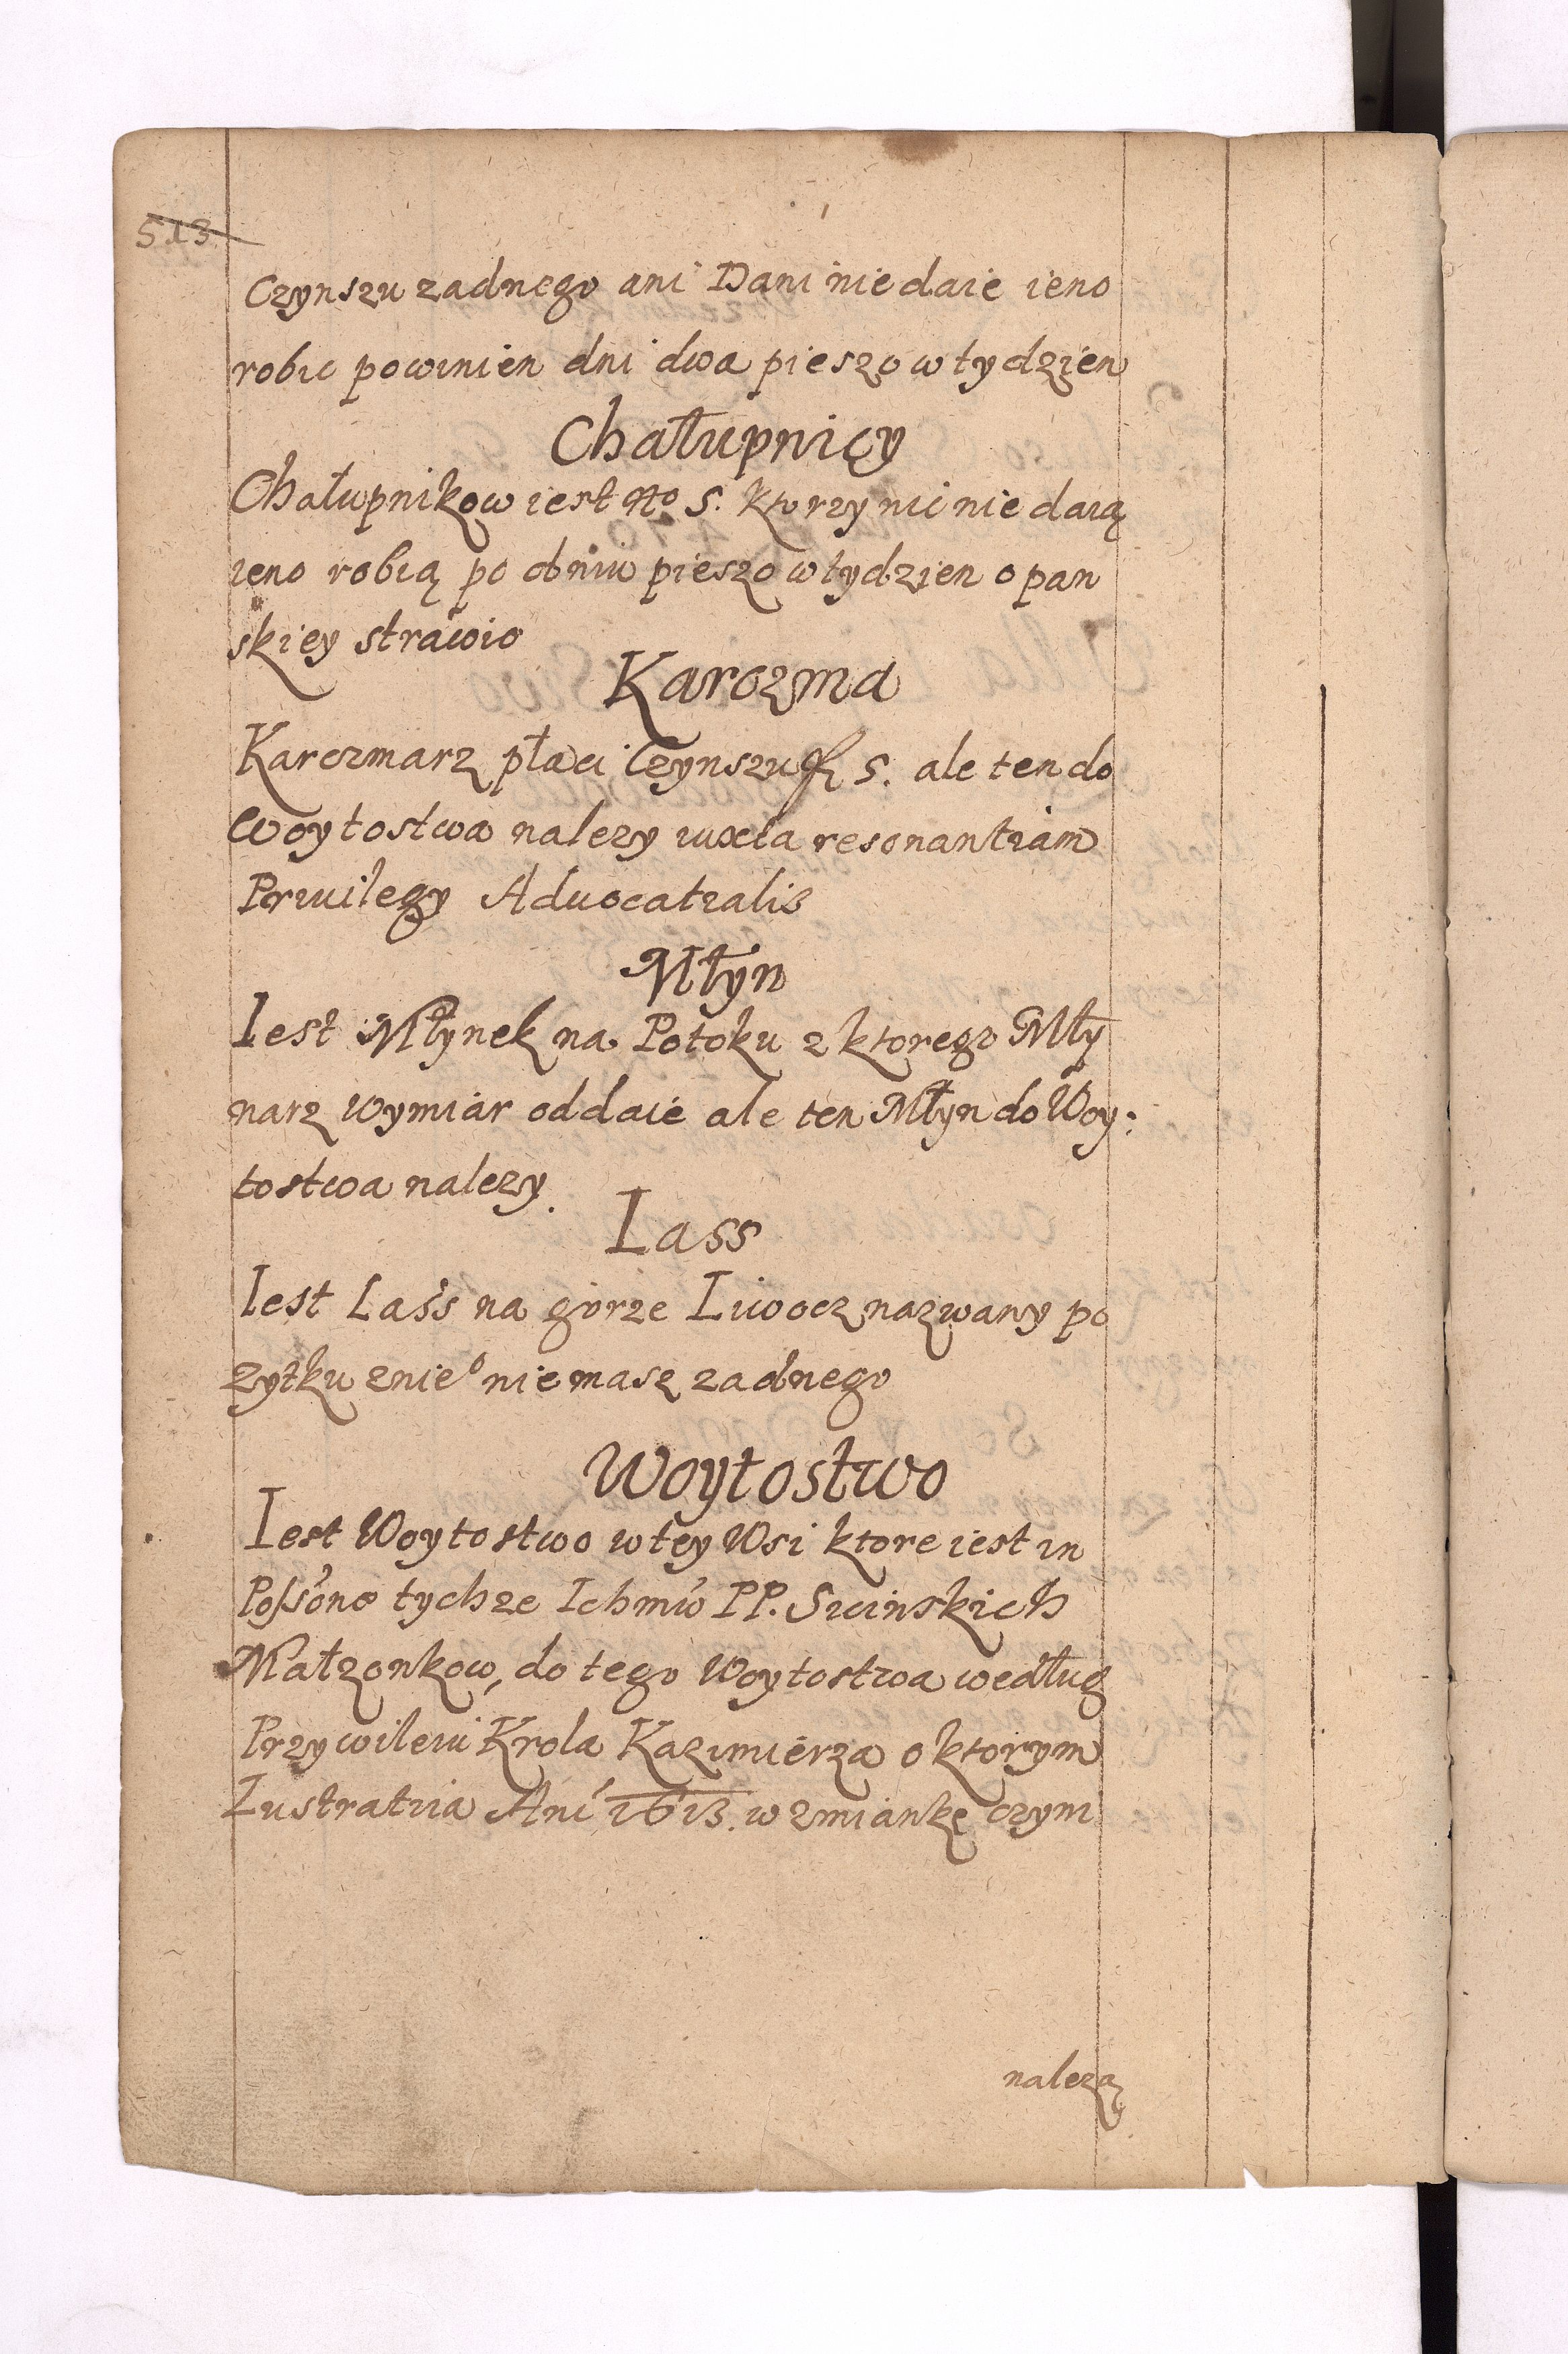 513
Czynszu zadnego ani Dani nie daie ieno
robic powinien dni dwa pieszo w tydzien
Chałupnicy
Chałupnikow iest No 5. ktorzy nic nie daią
ieno robią po dniu pieszo w tydzien o pan
skiey strawie
Karczma
Karczmarz płaci Czynszu 5. ale ten do
Woytostwa nalezy iuxta resonantiam
Priuilegy Aduocatialis
Młyn
Iest Młynek na Potoku z ktorego Mły
narz wymiar oddaie ale ten Młyn do Woy:
tostwa nalezy.
Lass
Iest Lass na gorze Liwocz nazwany po
zytku znieo nie masz zadnego
Woytostwo
Iest Woytostwo w tey Wsi ktore iest in
Possone tychze Ichmw PP. Sicinskich
Małzonkow, do tego Woytostwa według
Przywileiu Krola Kazimierza o ktorym
Lustratia Ani 1613. wzmiankę czyni
nalezą